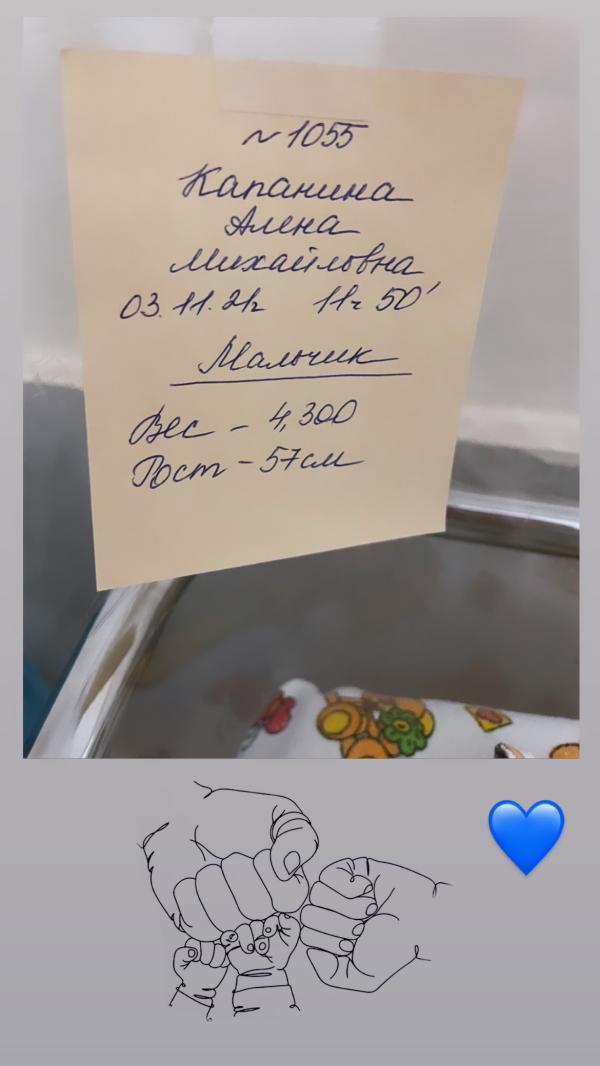 ~ 1055
Капанина
Алена
Михайловна
03.11.21г 11ч 50'
Мальчик
Вес - 4,300
Рост - 57см